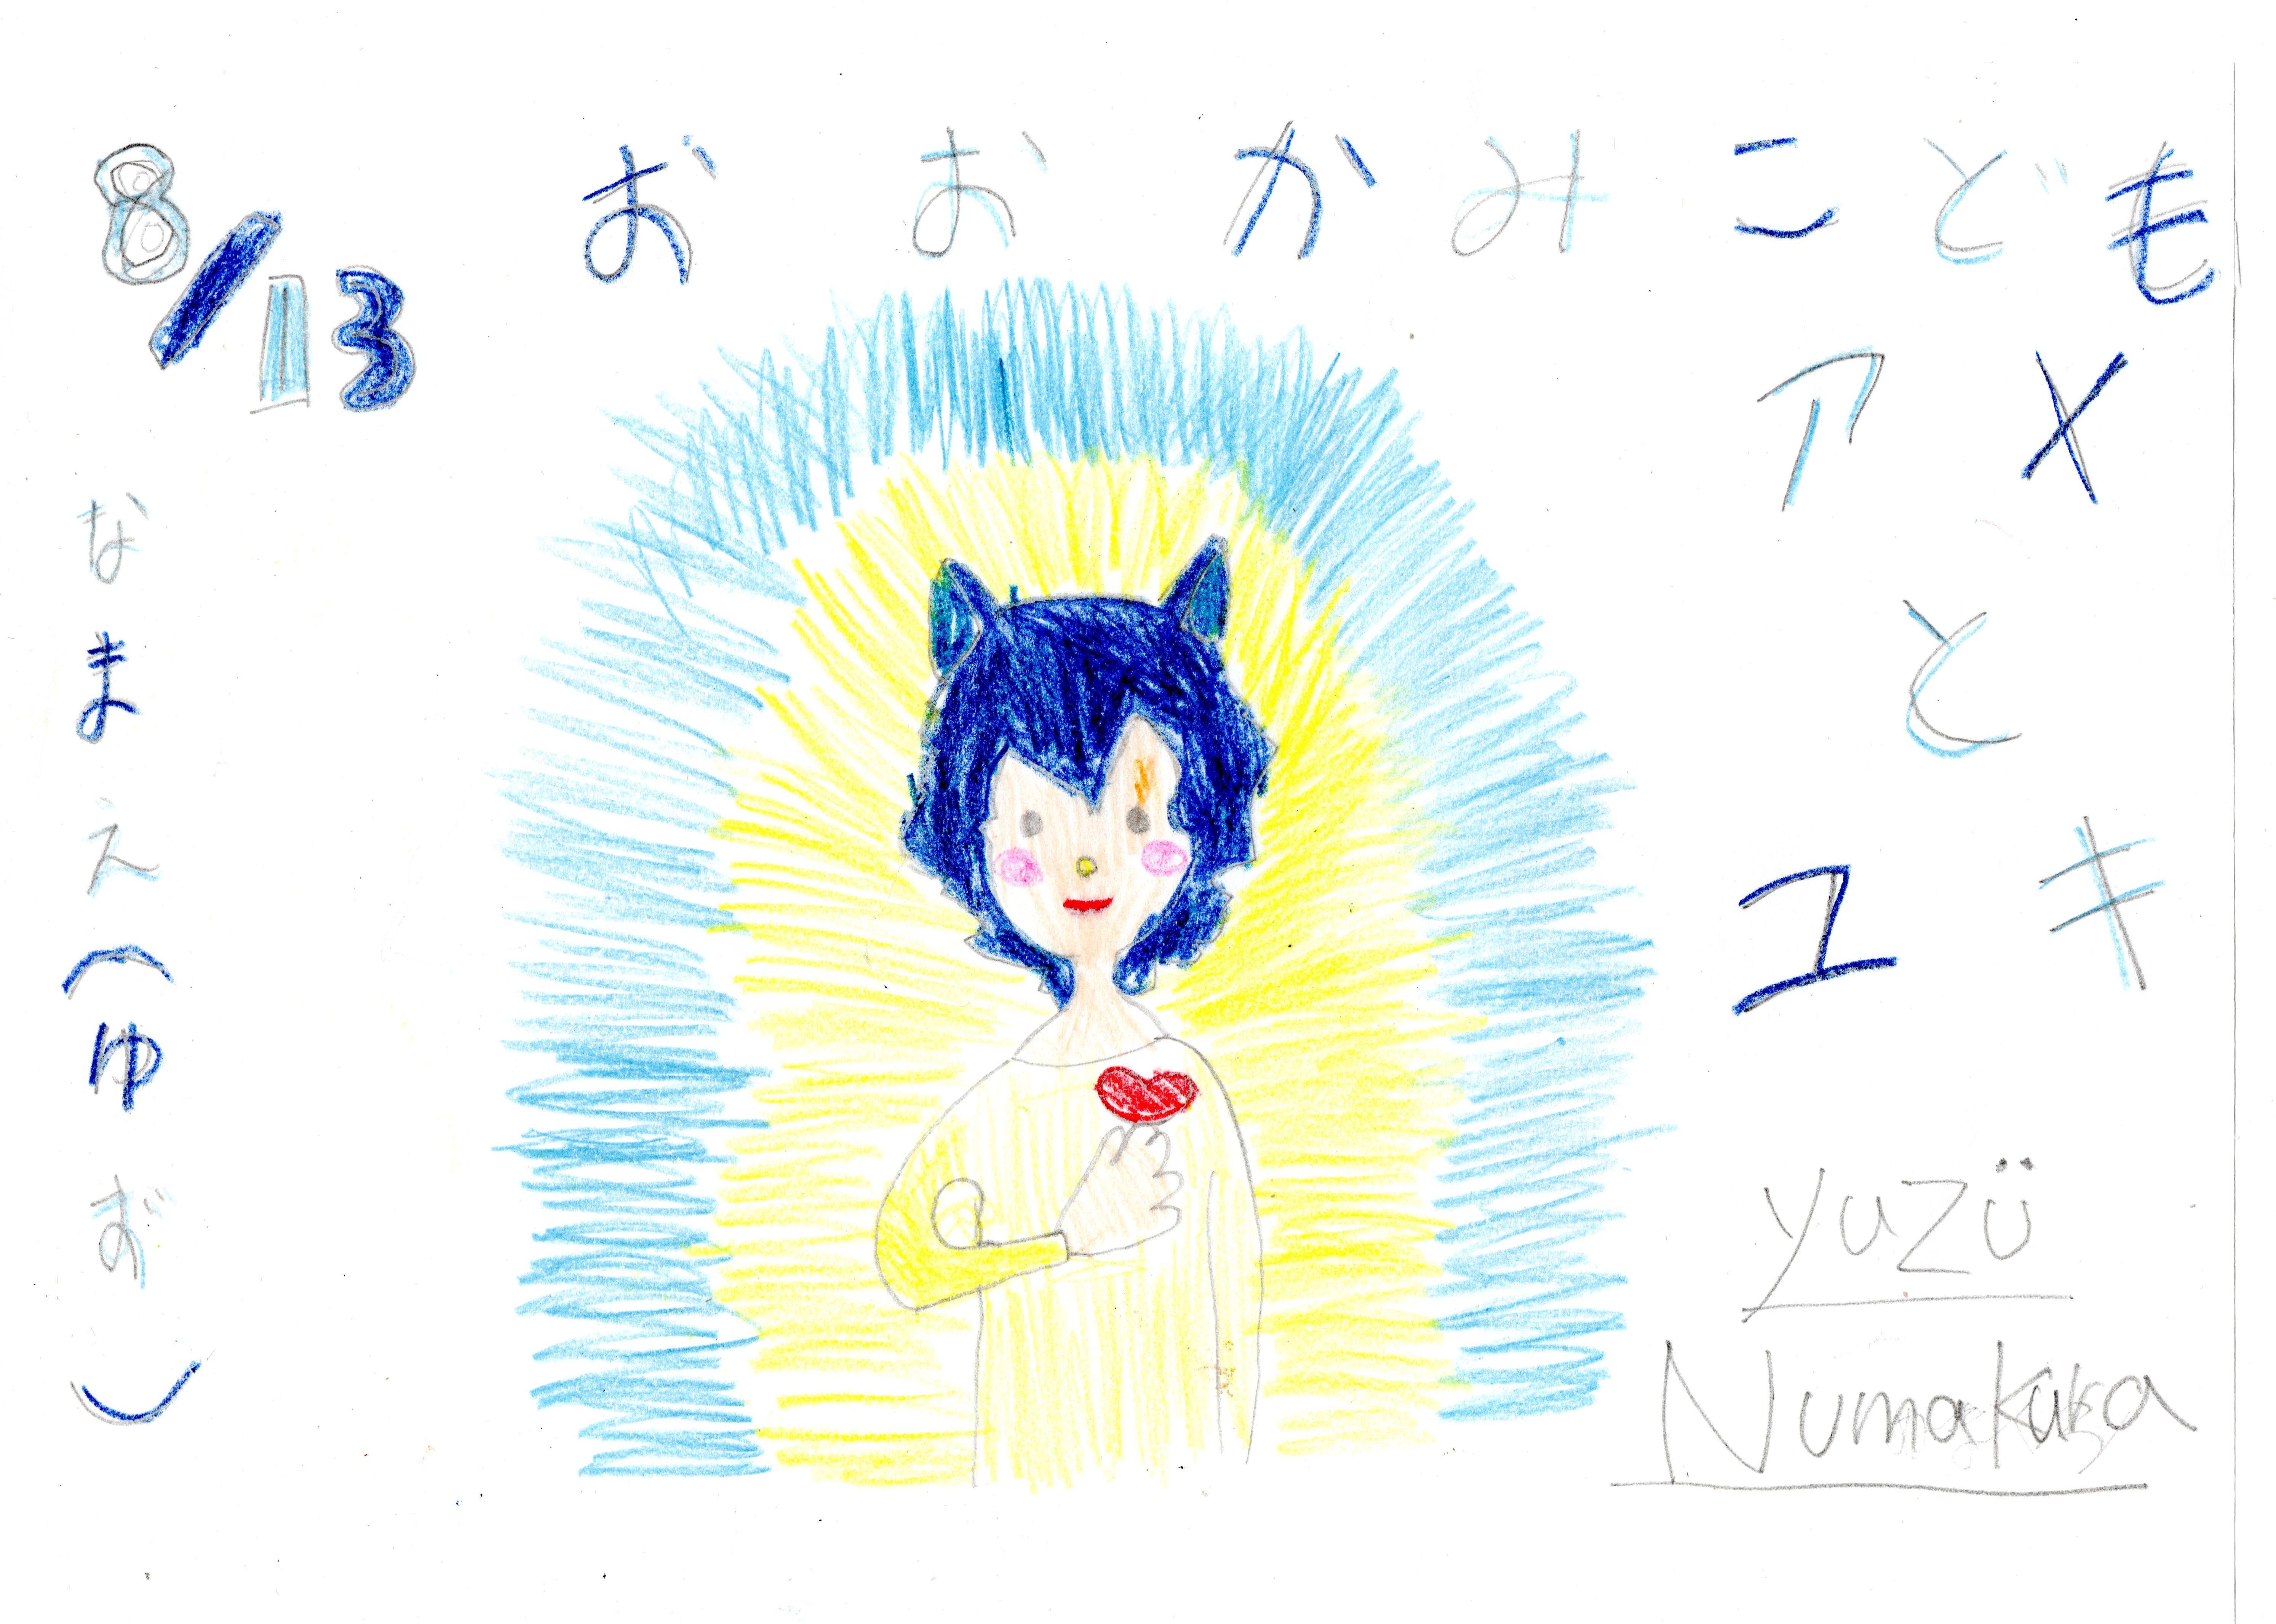 8/13
おおかみこども
アメ
と
ユキ
なまえ(ゆお)
yuzü
Numakura